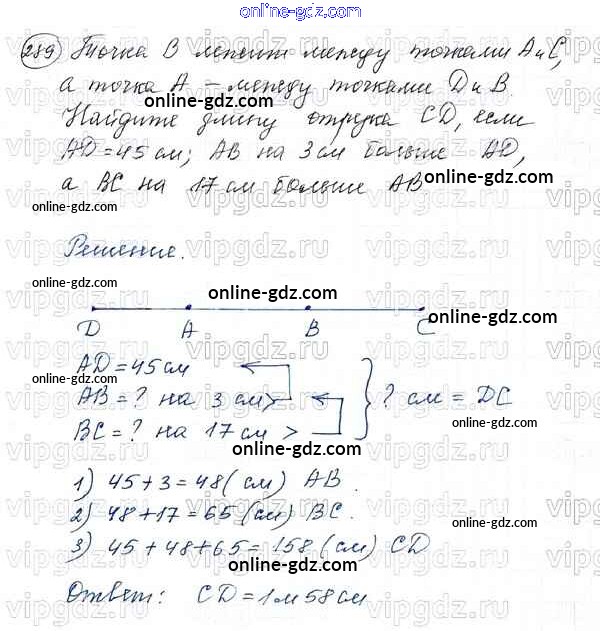 online-gdz.com
289) Точка В лежит между точками А и С,
а точка А – между точками D и В.
online-gdz.com
Найдите длину отрезка CD, если
AD=45 см; АВ на 3 см больше AD,
а ВС на 17 см больше АВ
online-gdz.com
online-gdz.com
Решение.
online-gdz.com
online-gdz.com
D A B C
online-gdz.com
AD=45 см
online-gdz.com
АВ=? на 3 см > } ? см = DC
ВС=? на 17 см >
online-gdz.com
1) 45+3=48 (см) АВ.
2) 48+17=65 (см) ВС.
online-gdz.com
3) 45+48+65=158 (см) CD
online-gdz.com
Ответ: CD=1м 58см
online-gdz.com
vipgdz.ru